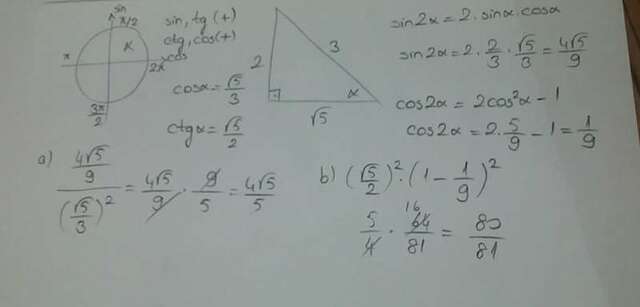 sin
π/2
α
π
cos
2π
3π/2
sin, tg (+)
ctg, cos(+)
cosα = √5/3
ctgα = √5/2
2
3
α
√5
sin2α = 2. sinα. cosα
sin2α = 2. 2/3 · √5/3 = 4√5/9
cos2α = 2cos²α - 1
cos2α = 2. 5/9 - 1 = 1/9
a) (4√5/9)/(√5/3)² = 4√5/9 · 9/5 = 4√5/5
b) (√5/2)² · (1 - 1/9)²
16
5/4 · 64/81 = 80/81